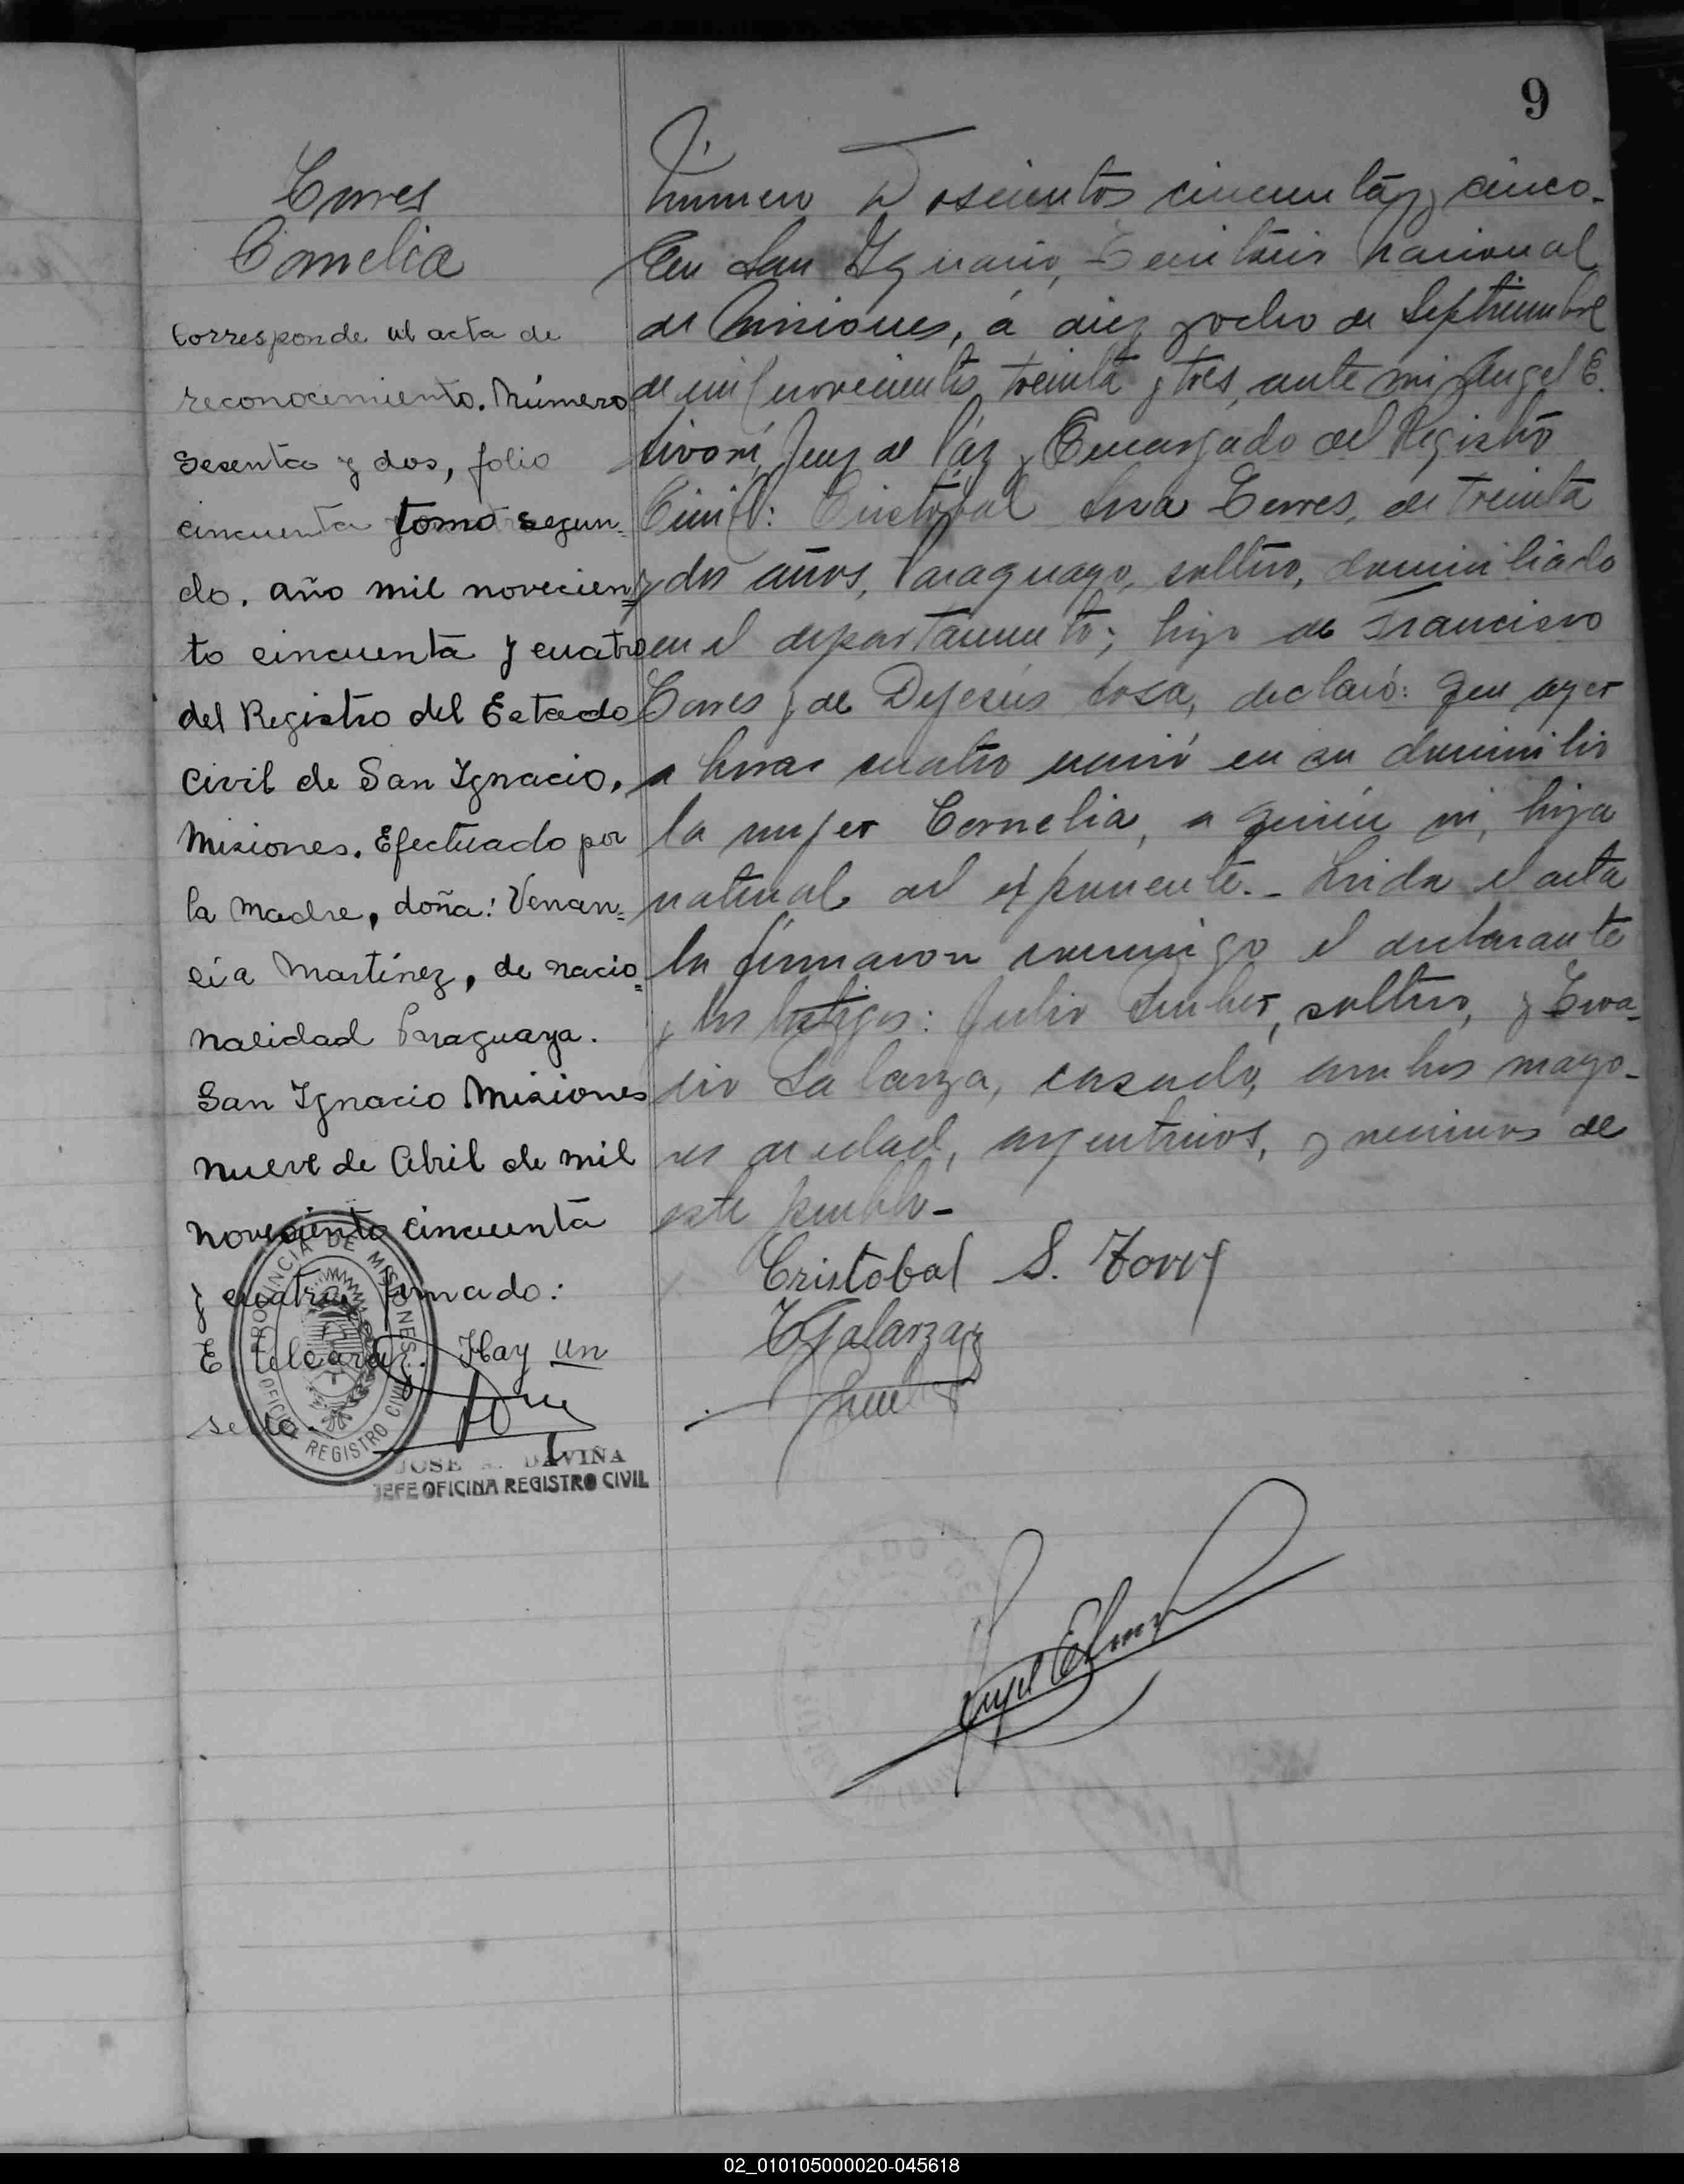 9
Torres
Cornelia
Corresponde al acta de
reconocimiento. Número
Sesenta y dos, folio
cincuenta tomo segun=
do. año mil novecien=
to cincuenta y cuatro
del Registro del Estado
Civil de San Ignacio,
Misiones. Efectuado por
la Madre, doña: Venan=
cia Martínez, de nacio=
nalidad Paraguaya.
San Ignacio Misiones
nueve de Abril de mil
noveciento cincuenta
y cuatro firmado:
E. Hay un
sello.
PROVINCIA DE MISIONES
OFICINA REGISTRO CIVIL
JOSE DAVIÑA
JEFE OFICINA REGISTRO CIVIL
Número Doscientos cincuenta y cinco.
En San Ignacio, Territorio Nacional
de Misiones, á diez y ocho de Septiembre
de mil novecientos treinta y tres, ante mi, Angel E.
Juez de Páz y Encargado del Registro
Civil: Cristóbal Sosa Torres, de treinta
y dos años, Paraguayo, soltero, domiciliado
en el departamento; hijo de Francisco
Torres y de Dejesús Sosa, declaró: Que ayer
a horas cuatro nació en su domicilio
la mujer Cornelia, a quién vi, hija
natural del exponente._ Leida el acta
la firmaron conmigo el declarante
y los testigos: Julio soltero, y
Galarza, casado, ambos mayo-
res de edad, argentinos, y vecinos de
este pueblo-
Cristobal S. Torres
Galarza
Angel E.
02_010105000020-045618